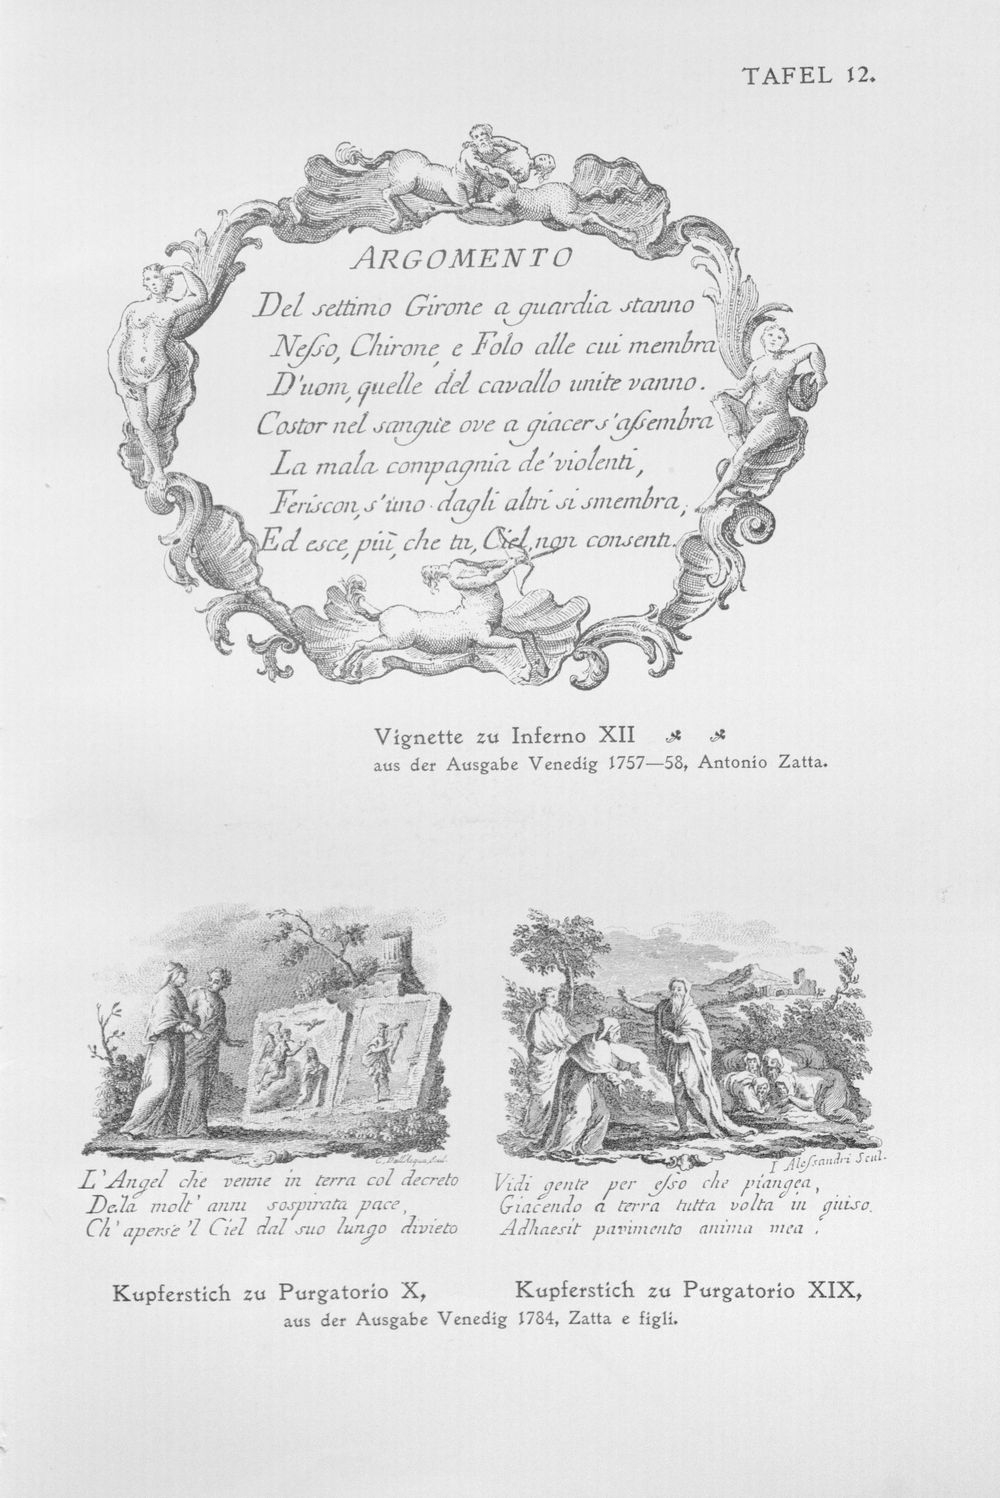 TAFEL 12.
ARGOMENTO
Del settimo Girone a guardia stanno
Neſso, Chirone, e Folo alle cui membra
D'uom, quelle del cavallo unite vanno.
Costor nel sangue ove a giacer s'aſsembra
La mala compagnia de' violenti,
Feriscon, s'uno dagli altri si smembra,
Ed esce, più, che tu, Ciel, non consenti.
Vignette zu Inferno XII
aus der Ausgabe Venedig 1757—58, Antonio Zatta.
L'Angel che venne in terra col decreto
Dela molt' anni sospirata pace,
Ch' aperse 'l Ciel dal suo lungo divieto
I Aleſsandri Scul.
Vidi gente per eſso che piangea,
Giacendo a terra tutta volta in giuso.
Adhaesit pavimento anima mea.
Kupferstich zu Purgatorio X,
Kupferstich zu Purgatorio XIX,
aus der Ausgabe Venedig 1784, Zatta e figli.